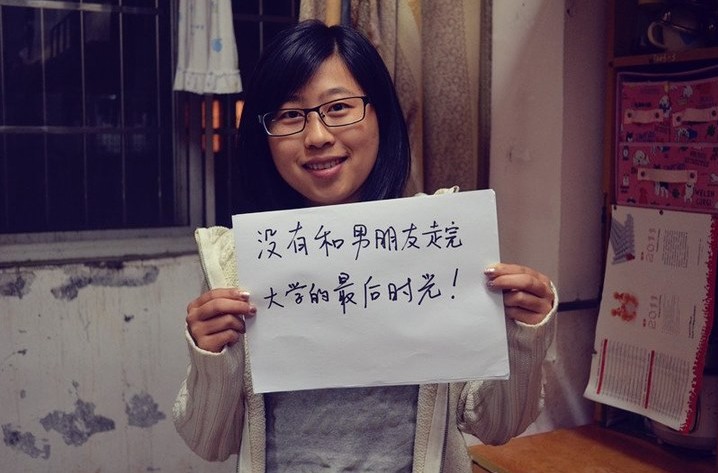 没有和男朋友走完
大学的最后时光！
2011
2011